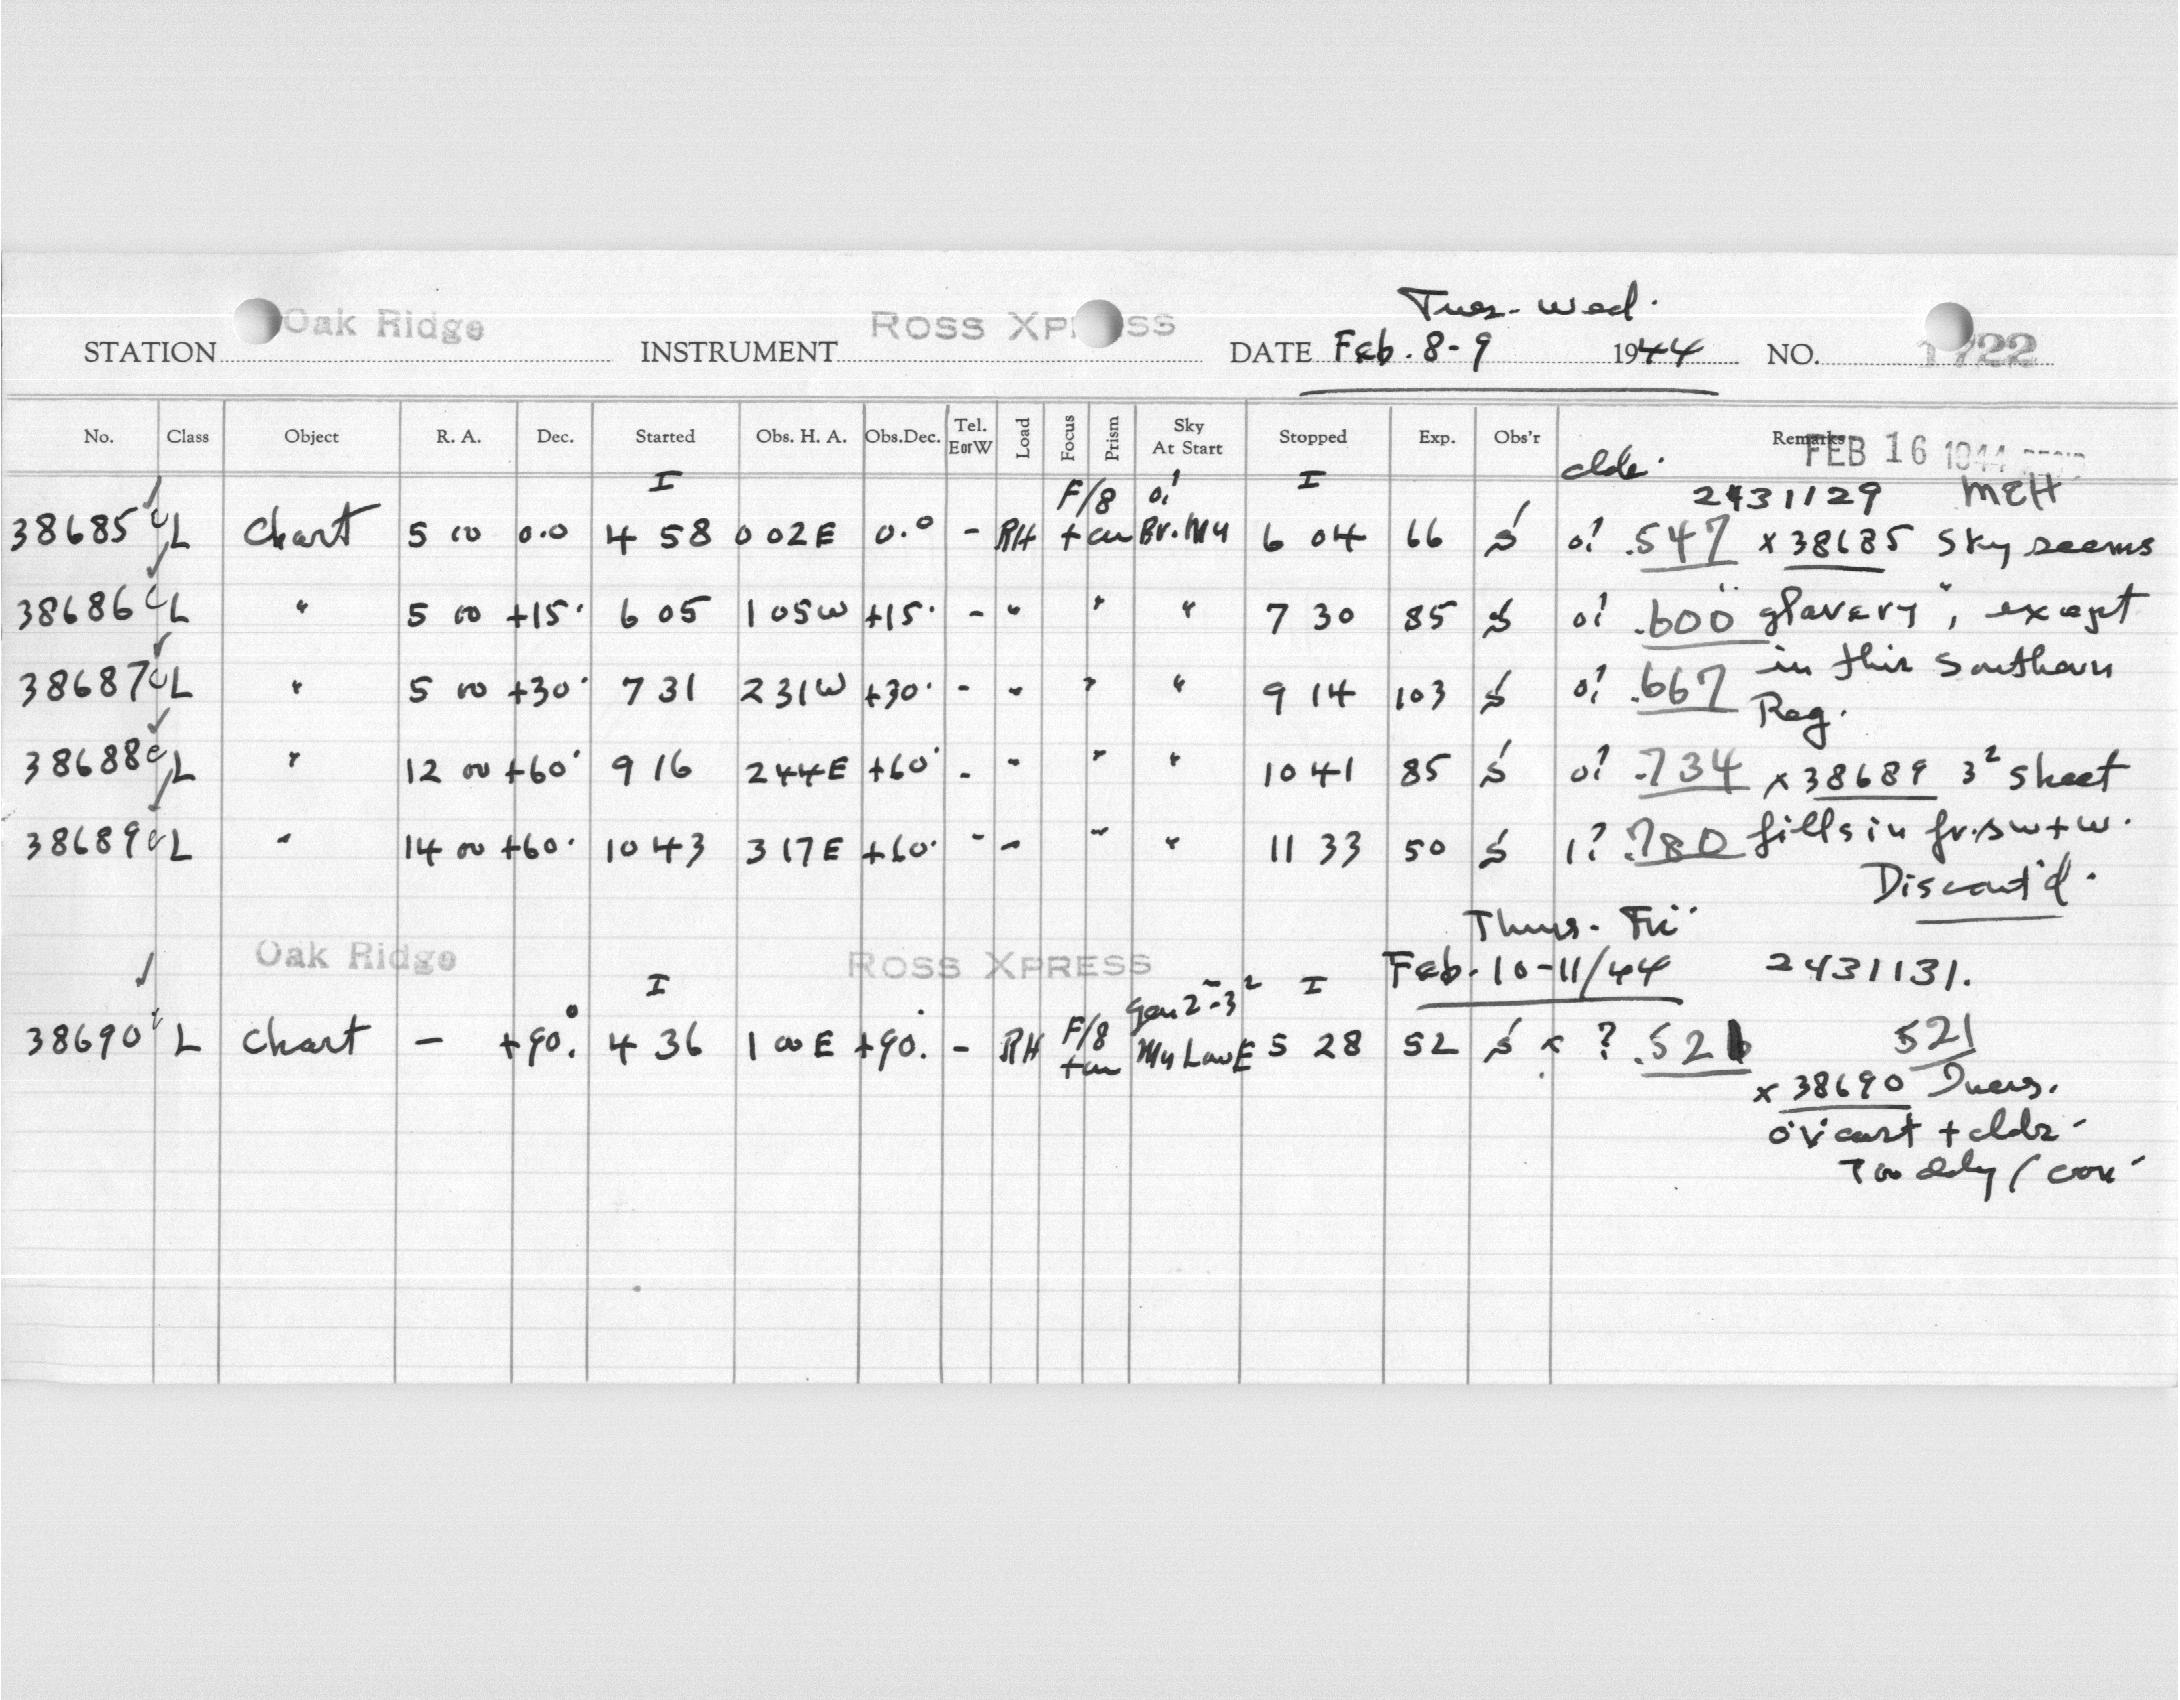 Oak Ridge ROSS XPRESS Tues. - Wed.
STATION INSTRUMENT DATE Feb. 8-9 1944 NO. 1722
No. Class Object R. A. Dec. Started Obs. H. A. Obs.Dec. Tel. E or W Load Focus Prism Sky At Start Stopped Exp. Obs'r Remarks
FEB 16 1944
I F/8 0! I clds. 2431129 McH
38685 L Chart 5 00 0.0 4 58 0 02E 0.° - RH + cu Br. My 6 04 66 S 0? .547 x 38685 Sky seems
38686 L " 5 00 +15. 6 05 1 05W +15. - " " " 7 30 85 S 0? .600 "glavery", except
38687 L " 5 00 +30. 7 31 2 31W +30. - " " " 9 14 103 S 0? .667 in this Southern
Reg.
38688 L " 12 00 +60. 9 16 2 44E +60. - " " " 10 41 85 S 0? .734 x 38689 3² sheet
38689 L " 14 00 +60. 10 43 3 17E +60. - " " " 11 33 50 S 1? .780 fills in fr. sw + w.
Discont'd.
Oak Ridge ROSS XPRESS Thurs. - Fri.
I I Feb. 10-11/44 2431131.
38690 L Chart - +90.° 4 36 1 00 E +90. - RH F/8 My Low E 5 28 52 S x ? .521 521
x 38690
ov'cast + clds.
Too cldy